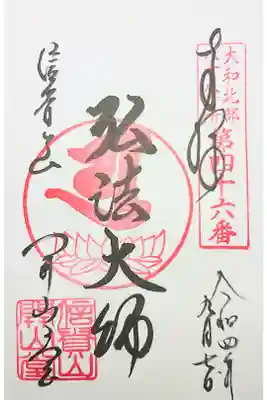 奉拝
大和北部
第四十六番
弘法大師
信貴山
開山堂
令和四年
九月吉日
信貴山
開山堂